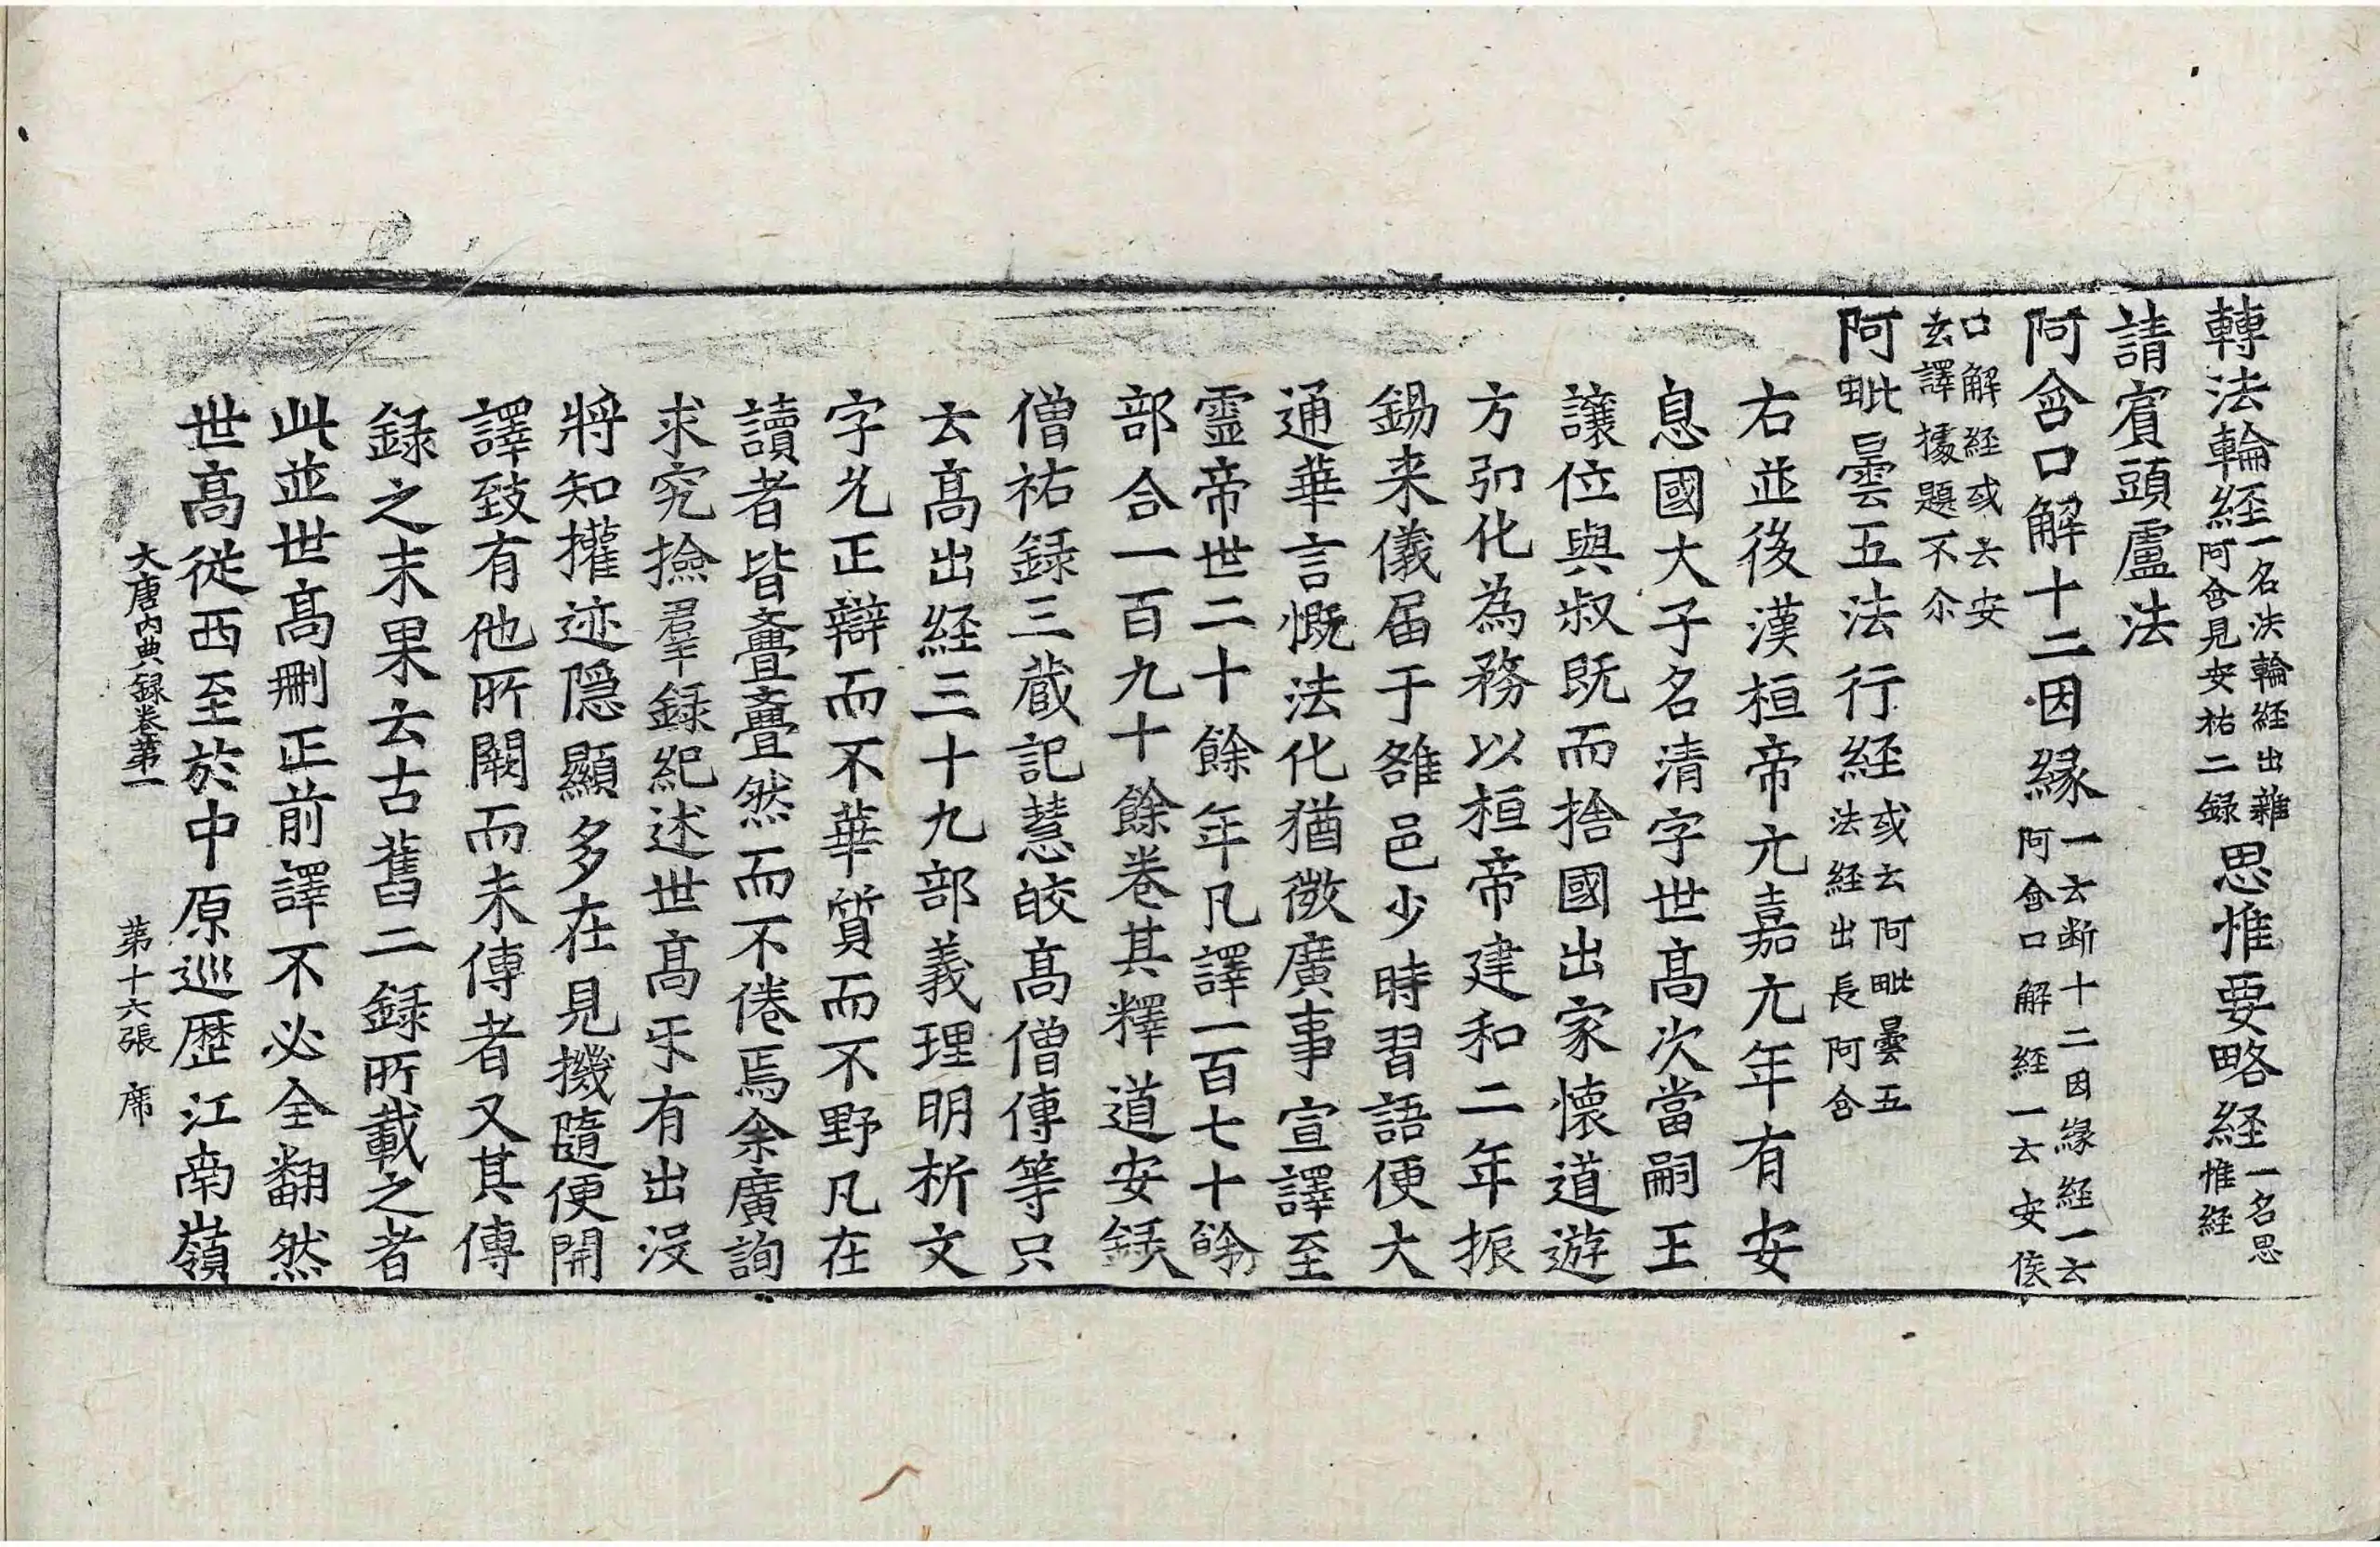 轉法輪経一名法輪経出雜阿含見安祐二録思惟要略経一名思惟経
請賓頭盧法
阿含口解十二因縁一云断十二因縁経一云阿含口解経一云安侯
口解経或云安玄譯據題不尒
阿毗曇五法行経或云阿毗曇五法経出長阿含
右並後漢桓帝元嘉元年有安
息國大子名清字世髙次當嗣王
讓位與叔既而捨國出家懷道遊
方弘化為務以桓帝建和二年振
錫来儀届于雒邑少時習語便大
通華言慨法化猶微廣事宣譯至
靈帝世二十餘年凡譯一百七十餘
部合一百九十餘卷其釋道安録
僧祐録三蔵記慧皎髙僧傳等只
云髙出経三十九部義理明析文
字允正辯而不華質而不野凡在
讀者皆亹亹然而不倦焉余廣詢
求究撿羣録紀述世髙乐有出没
將知權迹隠顯多在見機隨便開
譯致有他所闕而未傳者又其傳
録之末果云古舊二録所載之者
此並世髙刪正前譯不必全翻然
世髙従西至於中原巡歴江南嶺
大唐内典録卷第一　第十六張　席